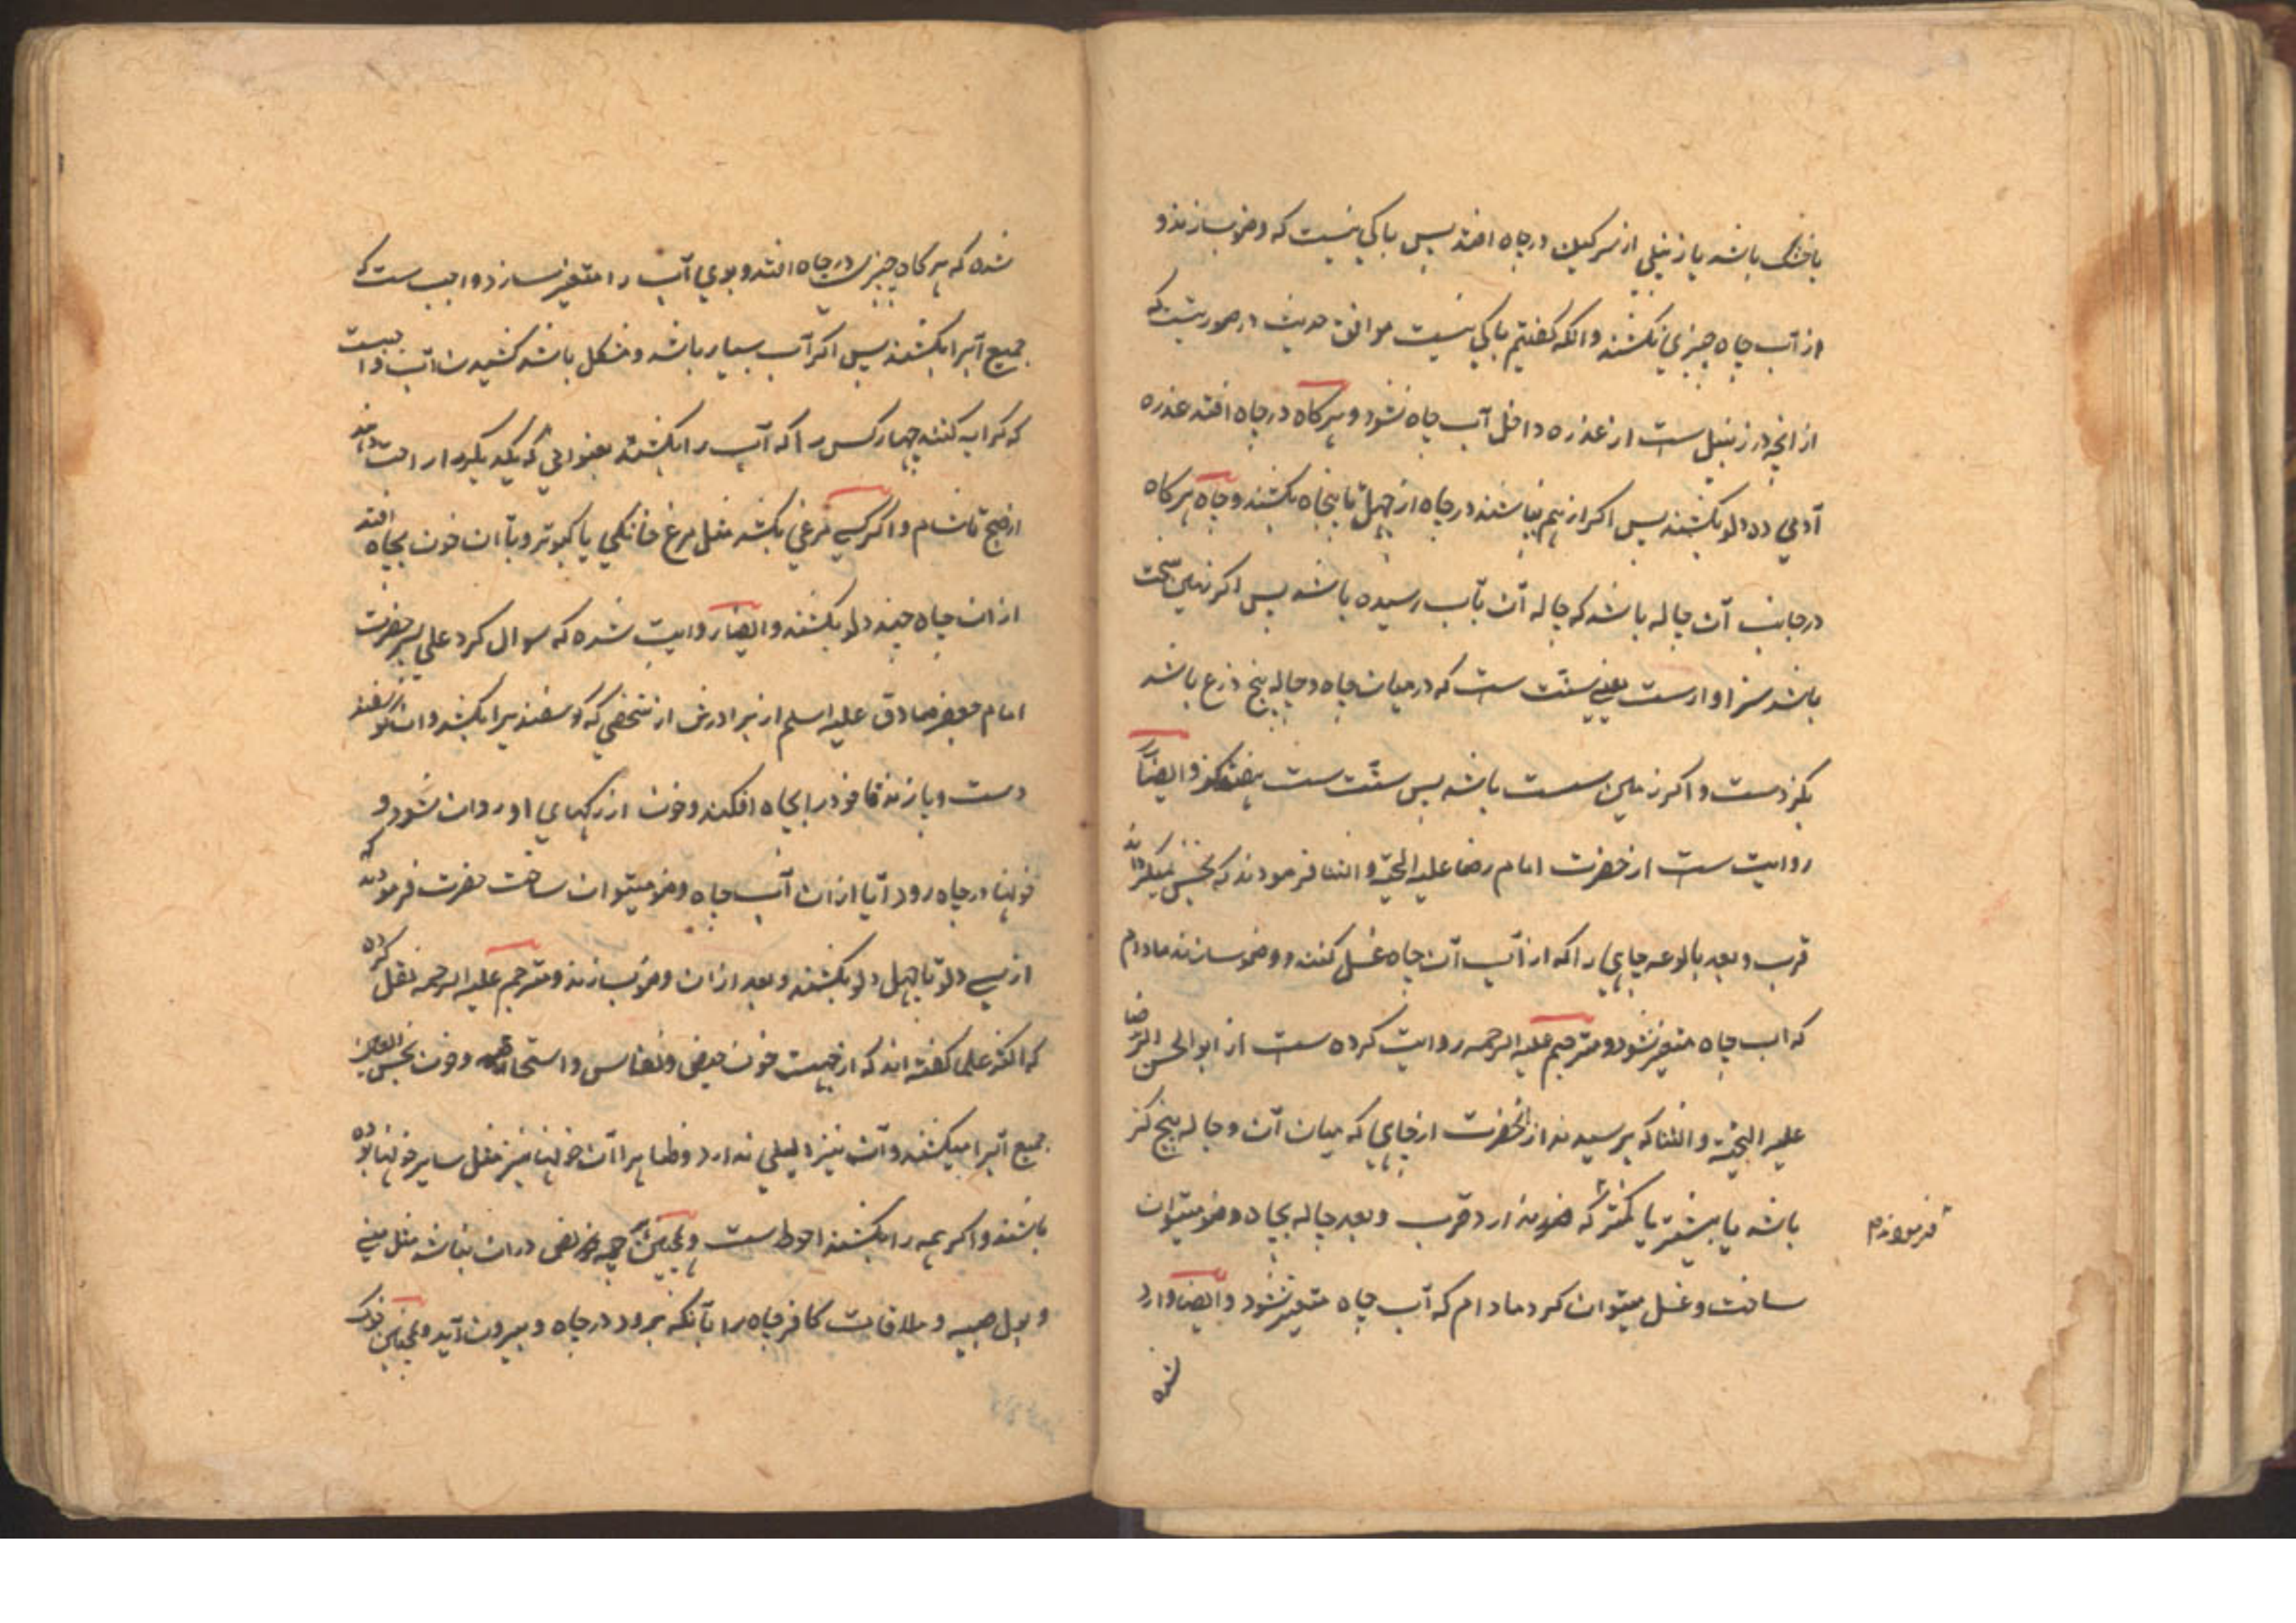 یا خشک باشد یا زنبیلی از سرکین در چاه افتد پس باکی نیست که وضو بسازند و
از آب چاه چیزی نکشند و انکه کفتیم باکی نیست موافق حدیث در صورتیست که
از انچه در زنبیل ست از عذره داخل آب چاه نشود و هرکاه در چاه افتد عذره
آدمی ده دلو بکشند پس اکر از هم بپاشند در چاه از چهل تا پنجاه بکشند و چاه هرکاه
در جانب آن چاله باشد که چاله آن بآب رسیده باشد پس اکر زمین سخت
باشد سزاوارست یعنی سنّت ست که در میان چاه و چاله پنج ذرع باشد
بکز دست و اکر زمین سست باشد پس سنّت ست هفت کز و ایضاً
روایت ست از حضرت امام رضا علیه التحیّة و الثنا فرمودند که نجس نمیکرداند
قرب و بعد بالوعه چاهی را که از آب آن چاه غسل کنند و وضو سازند مادام
که اب چاه متغیر نشود و مترجم علیه الرحمه روایت کرده ست از ابوالحسن الرّضا
علیه التحیّة و الثنا که پرسیدند از آنحضرت از چاهی که میان آن و چاله پنج کز
باشد یا بیشتر یا کمتر که فرمودند ضرر ندارد قرب و بعد چاله بچاه وضو میتوان
ساخت و غسل میتوان کرد مادام که آب چاه متغیر نشود و ایضاً وارد
شده
شده که هرکاه چیزی در چاه افتد و بوی آب را متغیر سازد واجب ست که
جمیع آبرا بکشند پس اکر آب بسیار باشد و مشکل باشد کشیدن آب واجبست
که کرایه کنند چهار کس را که آب را بکشند بعنوانی که یکدیکر را راحت دهند
از صبح تا شام و اکر کسی مرغی بکشد مثل مرغ خانکی یا کبوتر و بآن خون بچاه افتد
از ان چاه چند دلو بکشند و ایضا روایت شده که سوال کرد علی پسر حضرت
امام جعفر صادق علیه السلم از برادرش از شخصی که کوسفندیرا بکشد و ان کوسفند
دست و پا زند تا خود را بچاه افکند و خون از رکهای او روان شود و
خونها در چاه رود آیا از ان آب چاه وضو میتوان ساخت حضرت فرمودند که
از سی دلو تا چهل دلو بکشند و بعد از ان وضو بسازند و مترجم علیه الرحمه نقل کرده
که اکثر علما کفته اند که از جهت خون حیض و نفاس و استحاضه و خون نجس العین
جمیع آبرا میکشند و آن نیز دلیلی ندارد و ظاهرا آن خونها نیز مثل سایر خونها بوده
باشند و اکر همه را بکشند احوط ست و همچنین آنچه نصی در ان نباشد مثل منی
و بول صبیه و ملاقات کافر چاه را بآنکه برود در چاه و بیرون آید و همچنین خوک